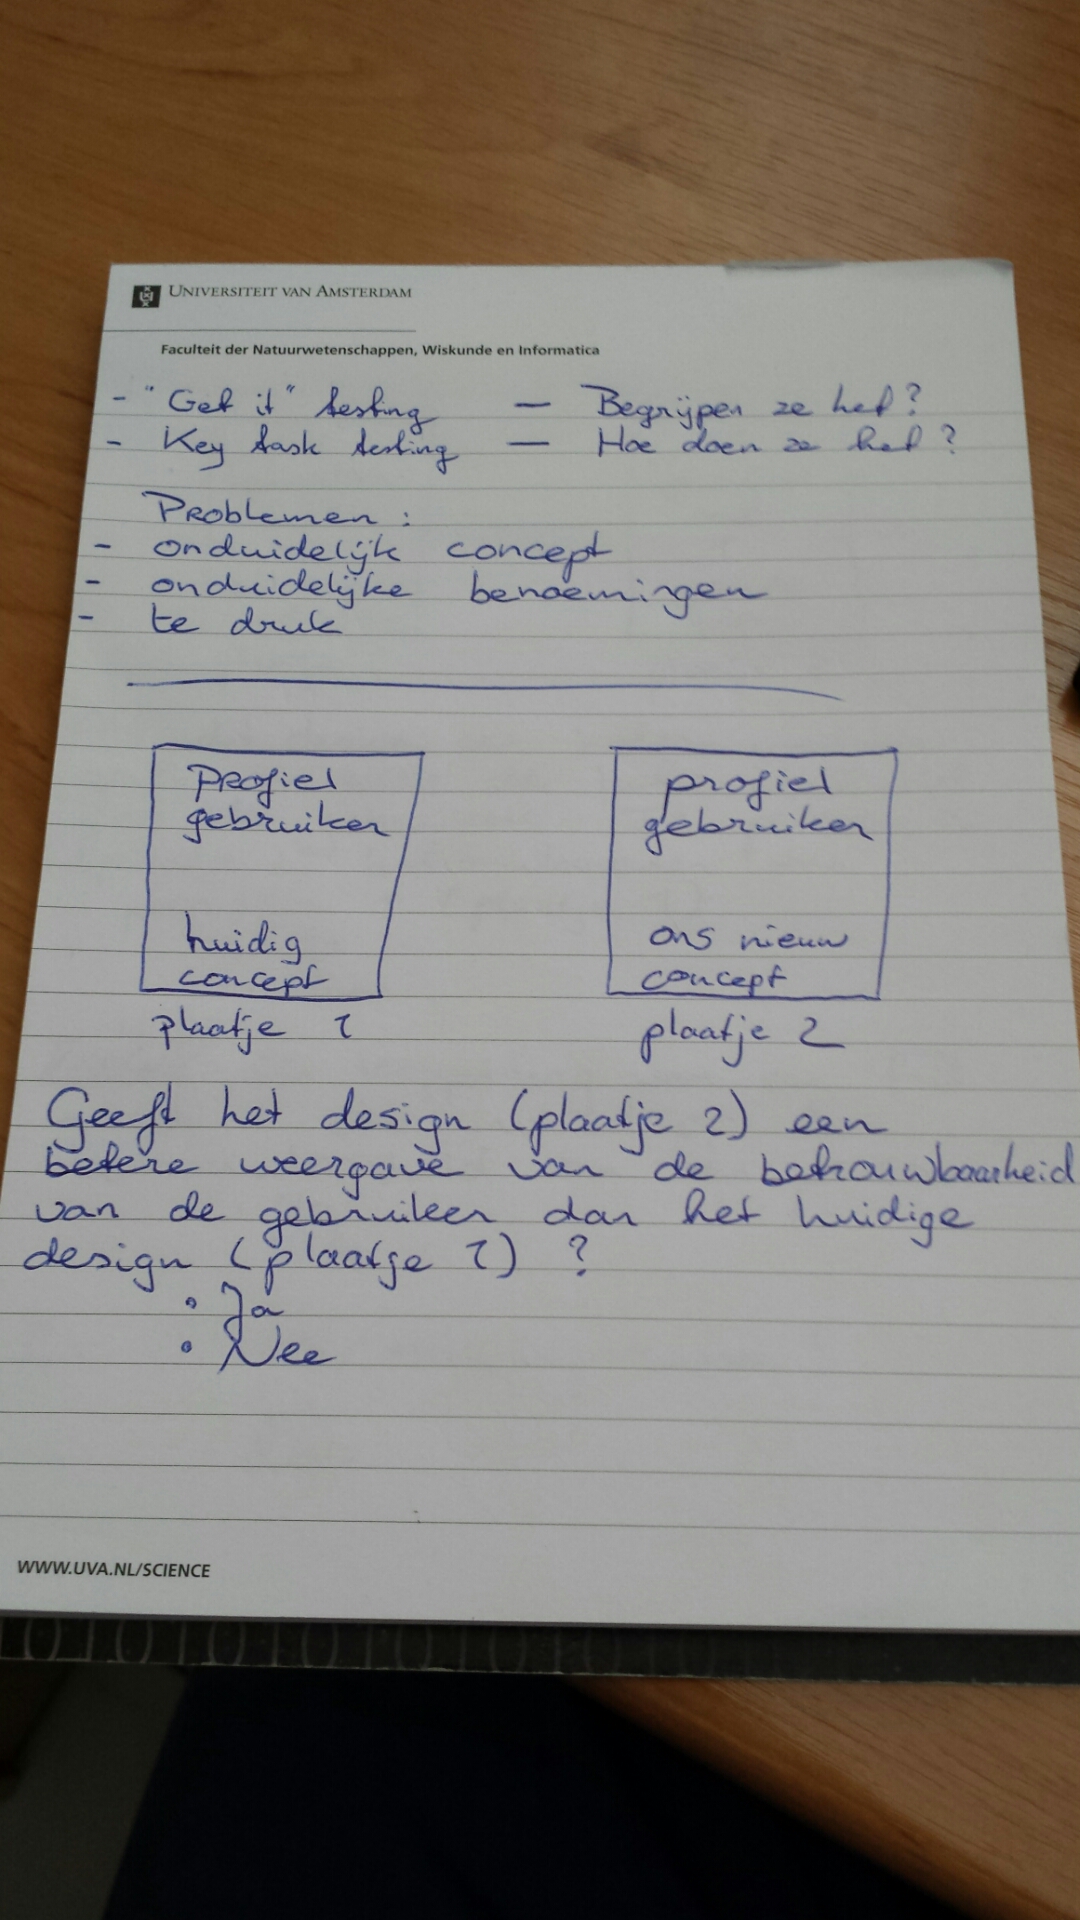 UNIVERSITEIT VAN AMSTERDAM
Faculteit der Natuurwetenschappen, Wiskunde en Informatica
- "Get it" testing — Begrijpen ze het?
- Key task testing — Hoe doen ze het?
Problemen:
- onduidelijk concept
- onduidelijke benoemingen
- te druk
Profiel
gebruiker
huidig
concept
plaatje 1
profiel
gebruiker
ons nieuw
concept
plaatje 2
Geeft het design (plaatje 2) een
betere weergave van de betrouwbaarheid
van de gebruiker dan het huidige
design (plaatje 1)?
• Ja
• Nee
WWW.UVA.NL/SCIENCE